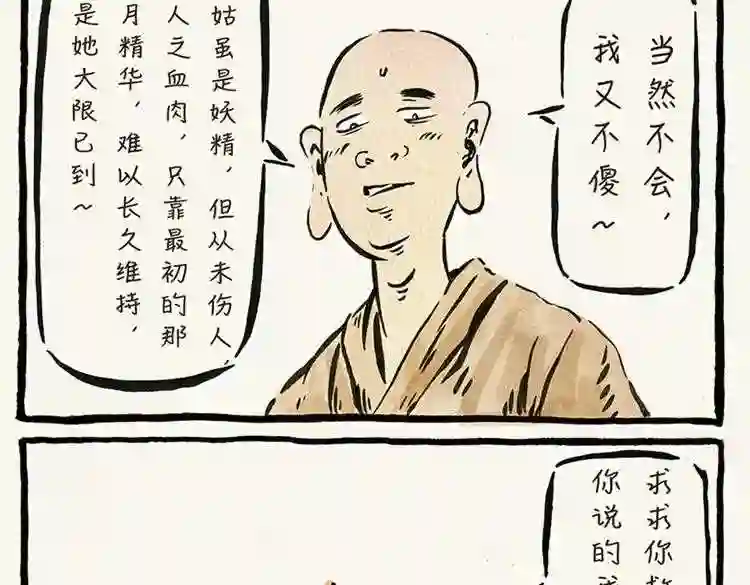 当然不会，
我又不傻～
姑虽是妖精，但从未伤人，
人之血肉，只靠最初的那
月精华，难以长久维持，
是她大限已到～
求求你救
你说的我